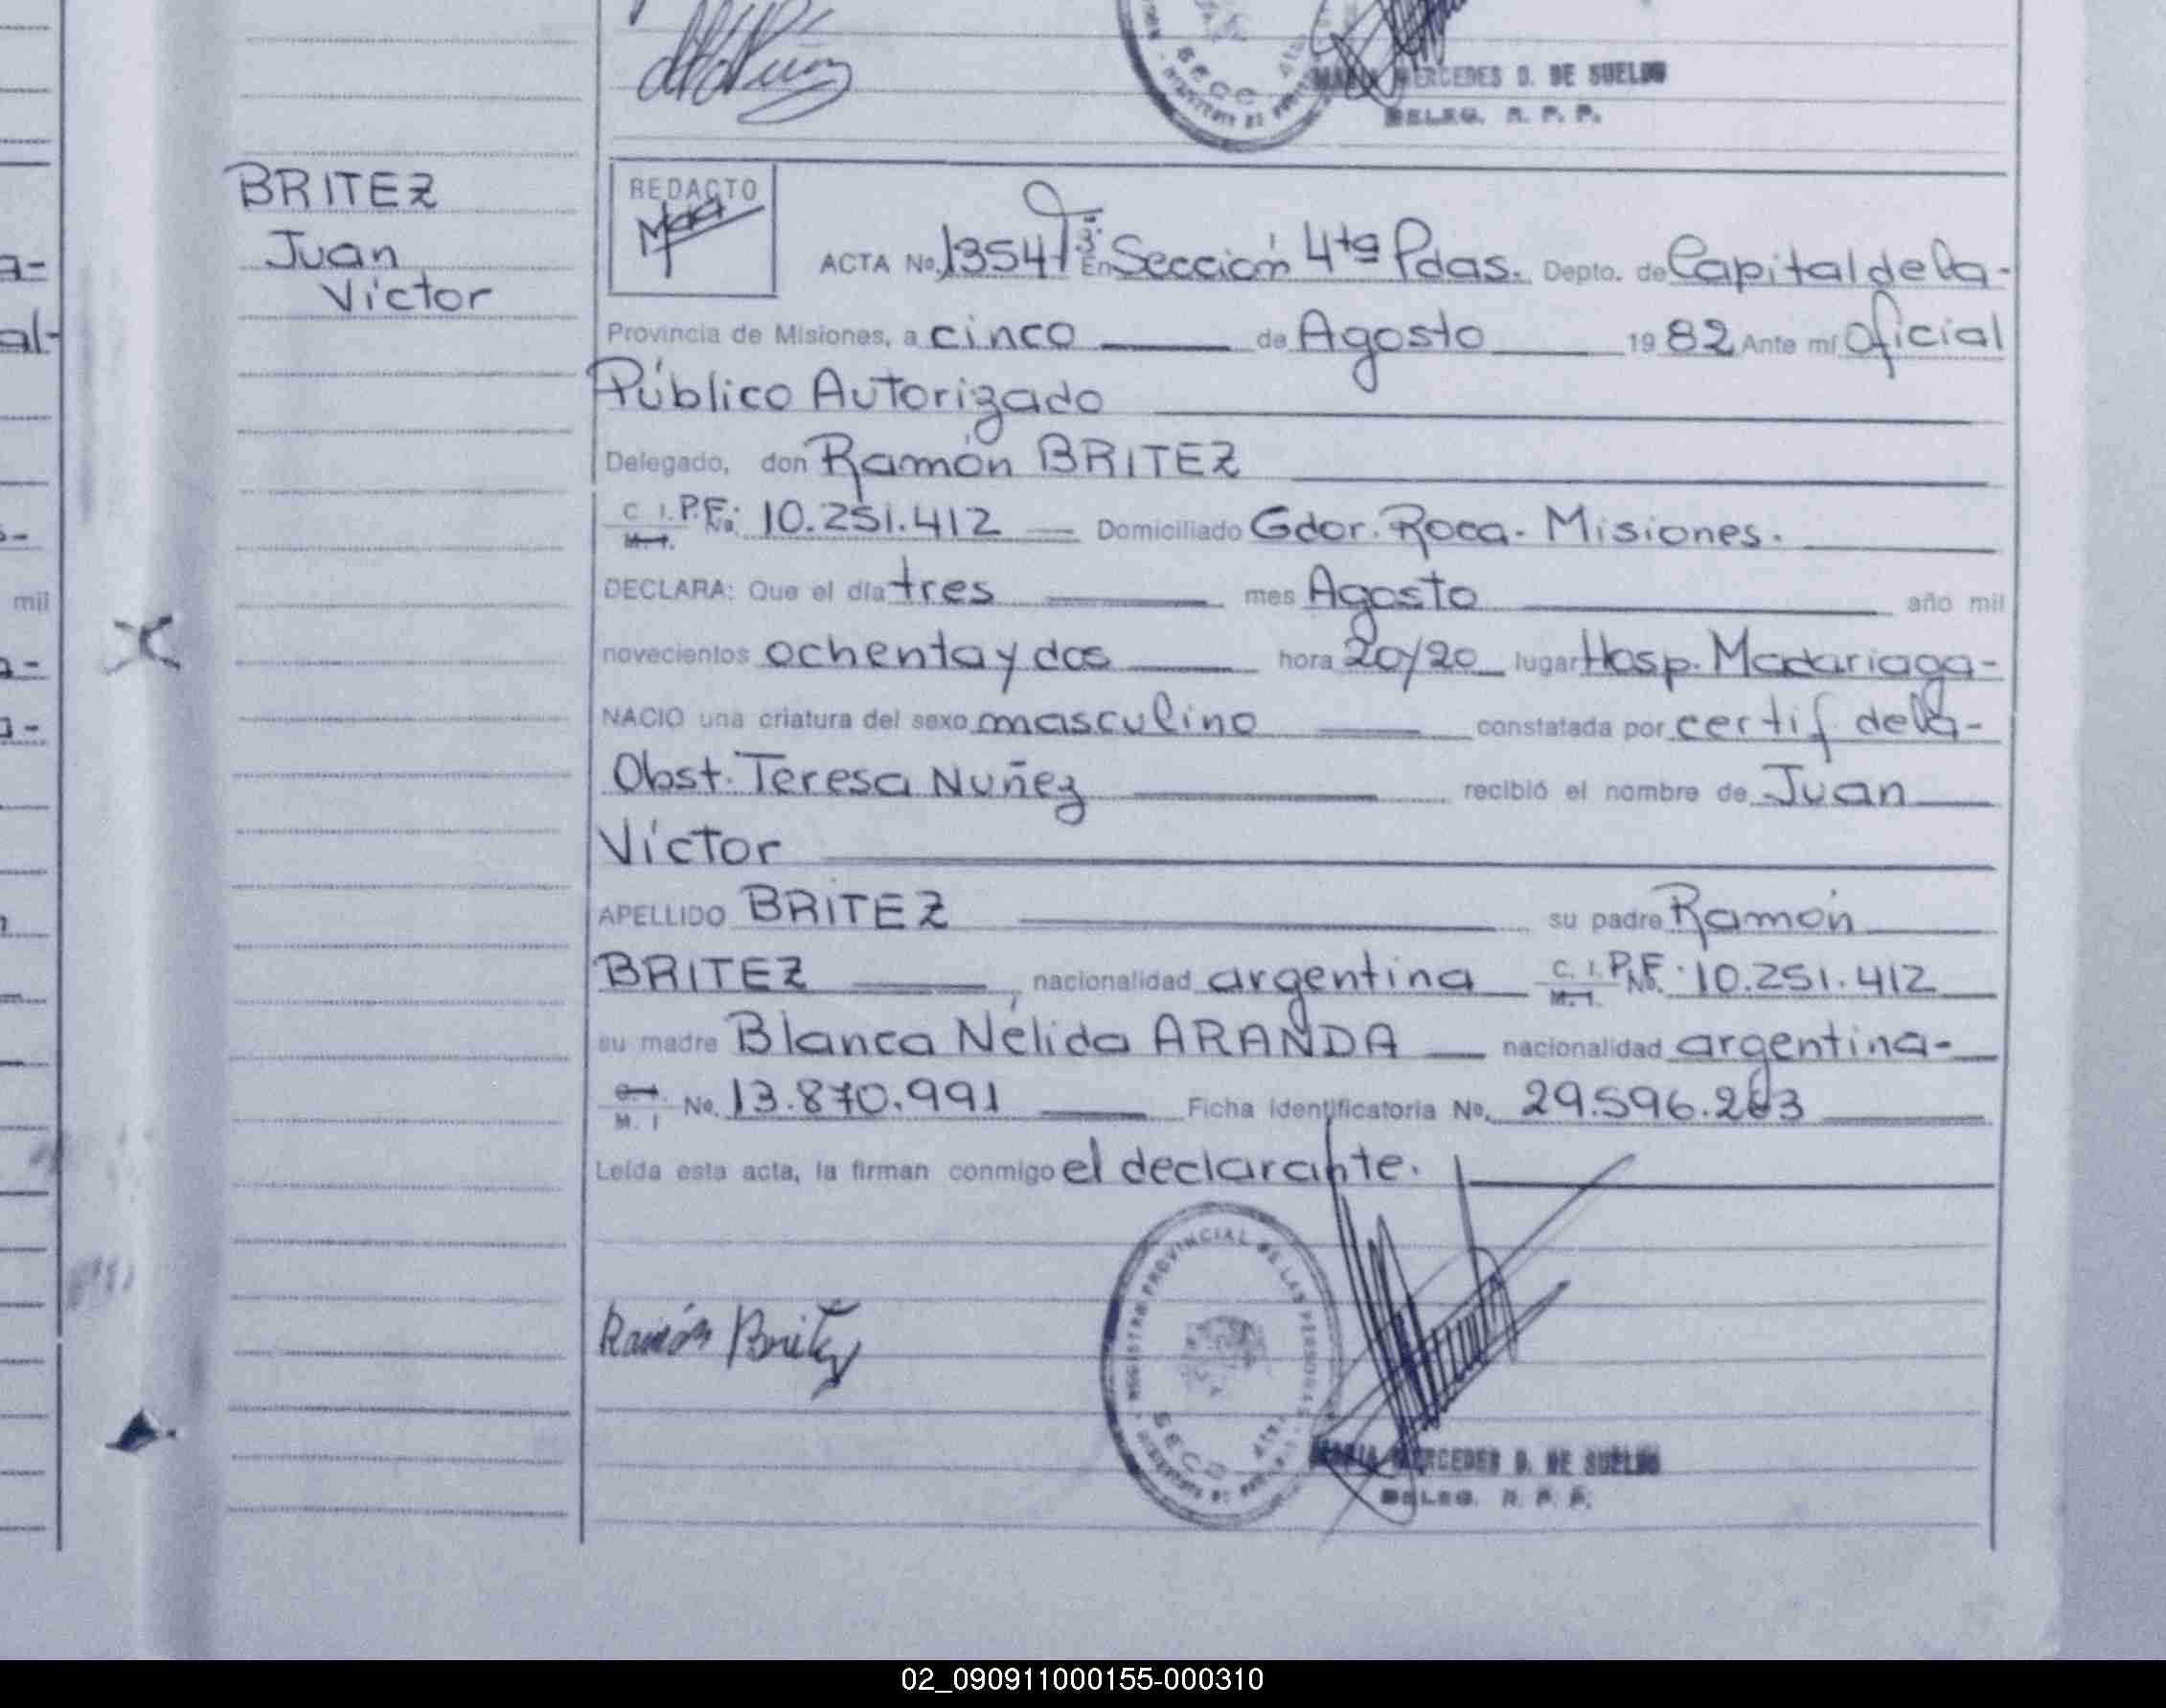 MARIA MERCEDES D. DE SUELDO
DELEG. R. P. P.
BRITEZ
Juan
Víctor
REDACTO
ACTA No. 1354 Tº 3º En Sección 4ta Pdas. Depto. de Capital de la-
Provincia de Misiones, a cinco de Agosto 1982 Ante mí Oficial
Público Autorizado
Delegado, don Ramón BRITEZ
C. I. P.F. No. 10.251.412 Domiciliado Gdor. Roca - Misiones.
M. I.
DECLARA: Que el día tres mes Agosto año mil
novecientos ochenta y dos hora 20/20 lugar Hosp. Madariaga-
NACIO una criatura del sexo masculino constatada por certif de la-
Obst. Teresa Nuñez recibió el nombre de Juan
Víctor
APELLIDO BRITEZ su padre Ramón
BRITEZ, nacionalidad argentina C. I. P.F. No. 10.251.412
M. I.
su madre Blanca Nélida ARANDA nacionalidad argentina-
M. I No. 13.870.991 Ficha identificatoria No. 29.596.263
Leída esta acta, la firman conmigo el declarante.
Ramón Britez
REGISTRO PROVINCIAL DE LAS PERSONAS
SECC 4ta
MARIA MERCEDES D. DE SUELDO
DELEG. R. P. P.
mil
02_090911000155-000310